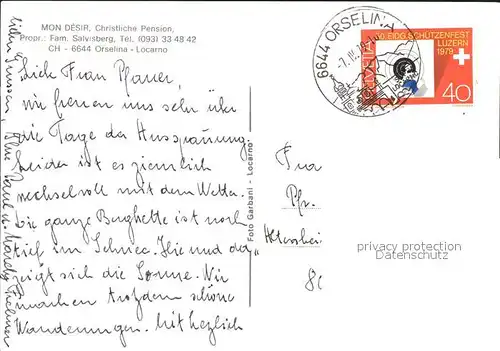 MON DÉSIR, Christliche Pension,
Propr.: Fam. Salvisberg, Tel. (093) 33 48 42
CH - 6644 Orselina - Locarno
Lieb Frau Pfarrer,
wir freuen uns sehr über
die Tage der Ausspannung.
Leider ist es ziemlich
wechselvoll mit dem Wetter.
Die ganze Bergkette ist noch
tief im Schnee. Hie und da
zeigt sich die Sonne. Wir
machen trotzdem schöne
Wanderungen. Mit herzlich
lieben Grüssen, Ihre Paul u.
Foto Garbani - Locarno
6644 ORSELINA
EIDG. SCHÜTZENFEST
LUZERN
1979
HELVETIA
40
Frau
Pfr.
8
privacy protection
Datenschutz